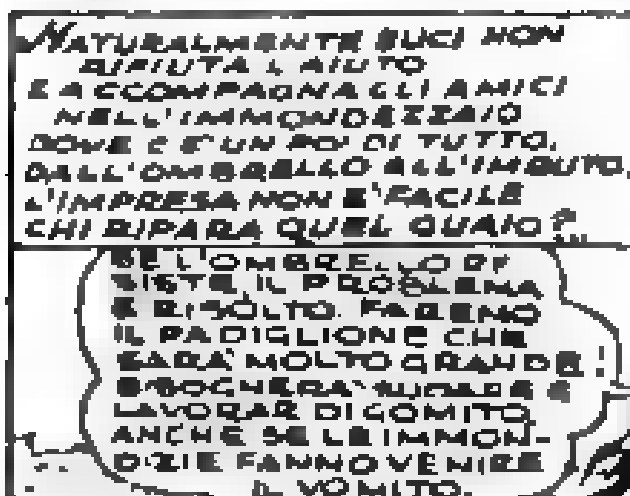 NATURALMENTE BUCI NON
RIFIUTA L'AIUTO
E ACCOMPAGNA GLI AMICI
NELL'IMMONDEZZAIO
DOVE C'E' UN PO' DI TUTTO,
DALL'OMBRELLO ALL'IMBUTO.
L'IMPRESA NON E' FACILE
CHI RIPARA QUEL GUAIO?
SE L'OMBRELLO RE
SISTE IL PROBLEMA
E' RISOLTO. FAREMO
IL PADIGLIONE CHE
SARA' MOLTO GRANDE!
BISOGNERA' E
LAVORAR DI GOMITO,
ANCHE SE LE IMMON-
DIZIE FANNO VENIRE
IL VOMITO.